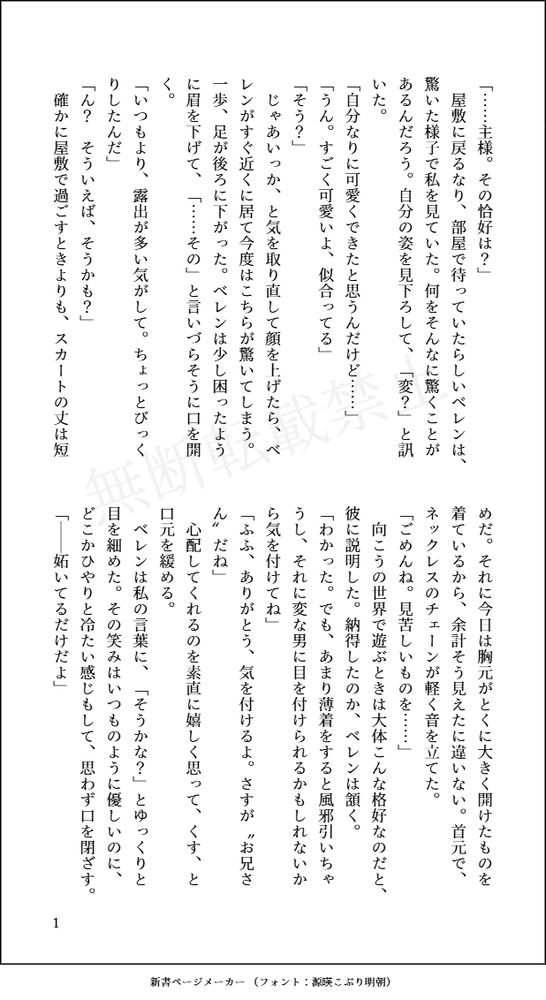 「……主様。その恰好は？」
　屋敷に戻るなり、部屋で待っていたらしいベレンは、
驚いた様子で私を見ていた。何をそんなに驚くことが
あるんだろう。自分の姿を見下ろして、「変？」と訊
いた。
「自分なりに可愛くできたと思うんだけど……」
「うん。すごく可愛いよ、似合ってる」
「そう？」
　じゃあいっか、と気を取り直して顔を上げたら、ベ
レンがすぐ近くに居て今度はこちらが驚いてしまう。
一歩、足が後ろに下がった。ベレンは少し困ったよう
に眉を下げて、「……その」と言いづらそうに口を開
く。
「いつもより、露出が多い気がして。ちょっとびっく
りしたんだ」
「ん？　そういえば、そうかも？」
　確かに屋敷で過ごすときよりも、スカートの丈は短
めだ。それに今日は胸元がとくに大きく開けたものを
着ているから、余計そう見えたに違いない。首元で、
ネックレスのチェーンが軽く音を立てた。
「ごめんね。見苦しいものを……」
　向こうの世界で遊ぶときは大体こんな格好なのだと、
彼に説明した。納得したのか、ベレンは頷く。
「わかった。でも、あまり薄着をすると風邪引いちゃ
うし、それに変な男に目を付けられるかもしれないか
ら気を付けてね」
「ふふ、ありがとう、気を付けるよ。さすが〝お兄さ
ん〟だね」
　心配してくれるのを素直に嬉しく思って、くす、と
口元を緩める。
　ベレンは私の言葉に、「そうかな？」とゆっくりと
目を細めた。その笑みはいつものように優しいのに、
どこかひやりと冷たい感じもして、思わず口を閉ざす。
「――妬いてるだけだよ」
無断転載禁止
1
新書ページメーカー（フォント：源暎こぶり明朝）